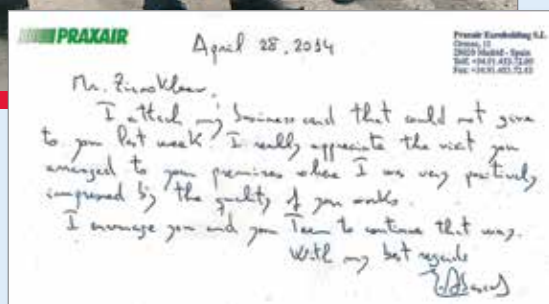 PRAXAIR
April 28, 2014
Praxair Euroholding S.L.
28020 Madrid - Spain
Mr.
I attach my business card that could not give
to you last week. I really appreciate the visit you
arranged to your premises where I was very positively
impressed by the quality of you works.
I encourage you and you Team to continue that way.
With my best regards